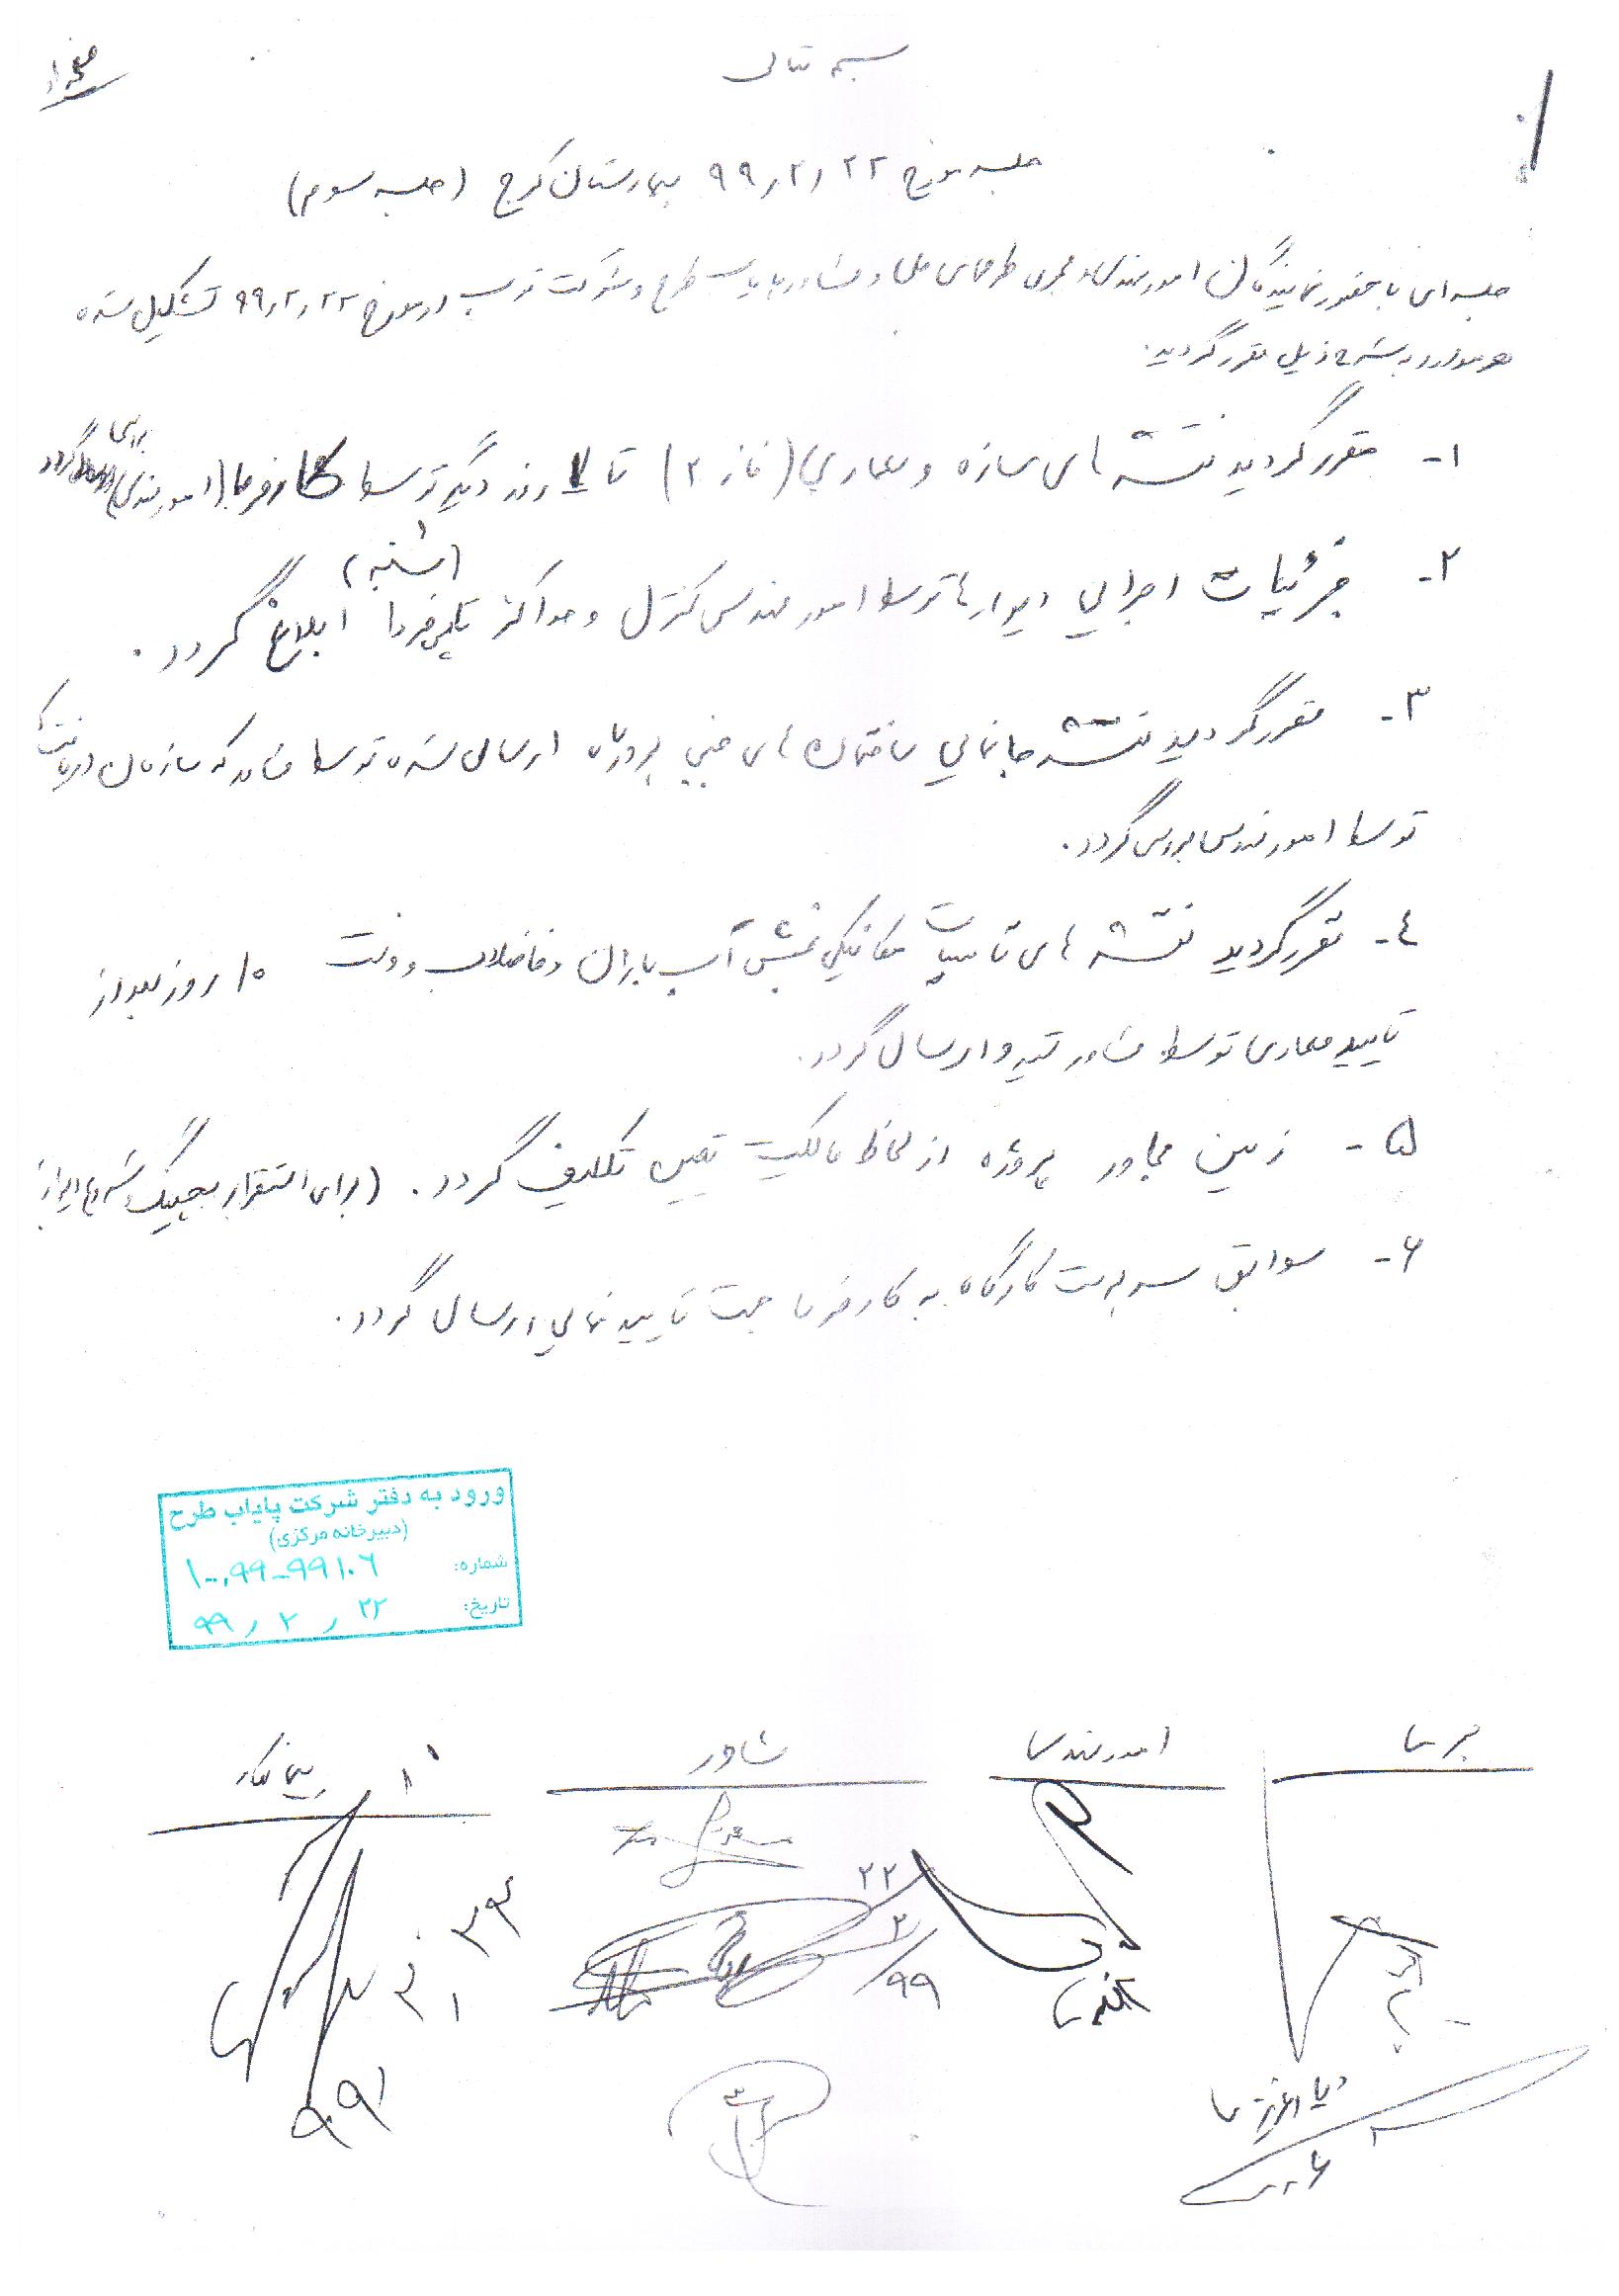 بسمه تعالی
صفحه ۱
جلسه مورخ ۹۹٫۲٫۲۲ بیمارستان کرج (جلسه سوم)
جلسه ای با حضور نمایندگان امور مهندسی و مجری طرحهای ملی و مشاور پایاب طرح و شرکت در مورخ ۹۹٫۲٫۲۲ تشکیل شده
و موارد به شرح ذیل مقرر گردید.
۱- مقرر گردید نقشه های سازه و معماری (فاز ۲) تا ۷ روز دیگر توسط کارفرما (امور مهندسی) بررسی گردد
۲- جزئیات اجرایی دیوارها توسط امور مهندسی کنترل و حداکثر تا پس فردا (۲ شنبه) ابلاغ گردد.
۳- مقرر گردید نقشه جانمایی ساختمان های جنبی پروژه ارسال شده توسط مشاور که سازمان
توسط امور مهندسی بررسی گردد.
۴- مقرر گردید نقشه های تاسیسات مکانیکی بخش آب باران و فاضلاب و ونت ۱۰ روز بعد از
تایید معماری توسط مشاور تهیه و ارسال گردد.
۵- زمین مجاور پروژه از لحاظ مالکیت تعیین تکلیف گردد. (برای استقرار بچینگ
۶- سوابق سرپرست کارگاه به کارفرما جهت تایید نهایی ارسال گردد.
ورود به دفتر شرکت پایاب طرح
(دبیرخانه مرکزی)
شماره: ۱۰۰٫۹۹-۹۹۱۰۶
تاریخ: ۹۹٫۲٫۲۲
امور مهندسی
مشاور
پیمانکار
۲۲
۲
/۹۹